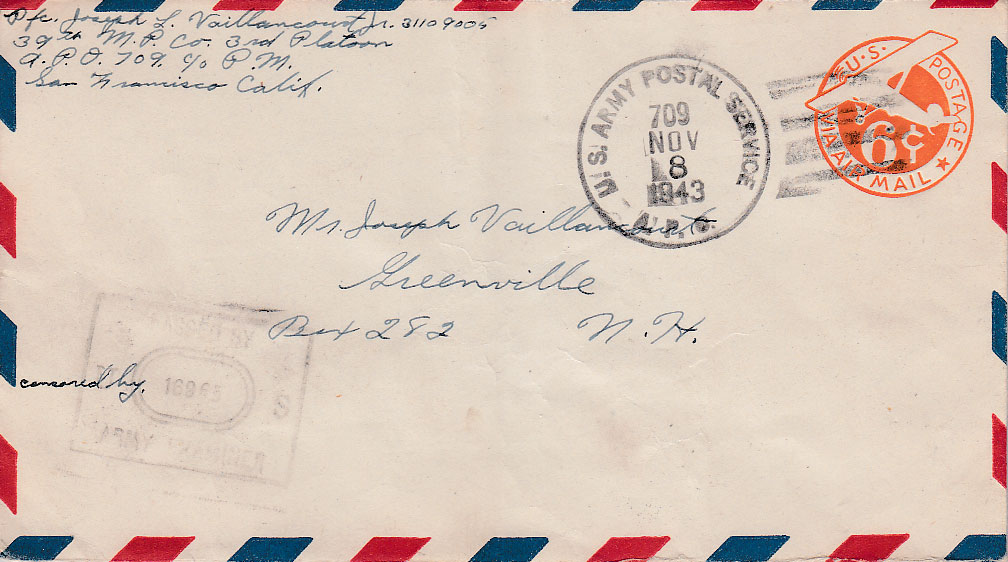 Pfc. Joseph L. Vaillancourt Jr. 31109005
39th M.P. Co. 3rd Platoon
A.P.O. 709. c/o P.M.
San Francisco Calif.
U.S. ARMY POSTAL SERVICE
709
NOV
8
1943
A.P.O.
U.S. POSTAGE
6¢
VIA AIR MAIL
Mr. Joseph Vaillancourt
Greenville
Box 282 N.H.
PASSED BY
censored by.
ARMY EXAMINER